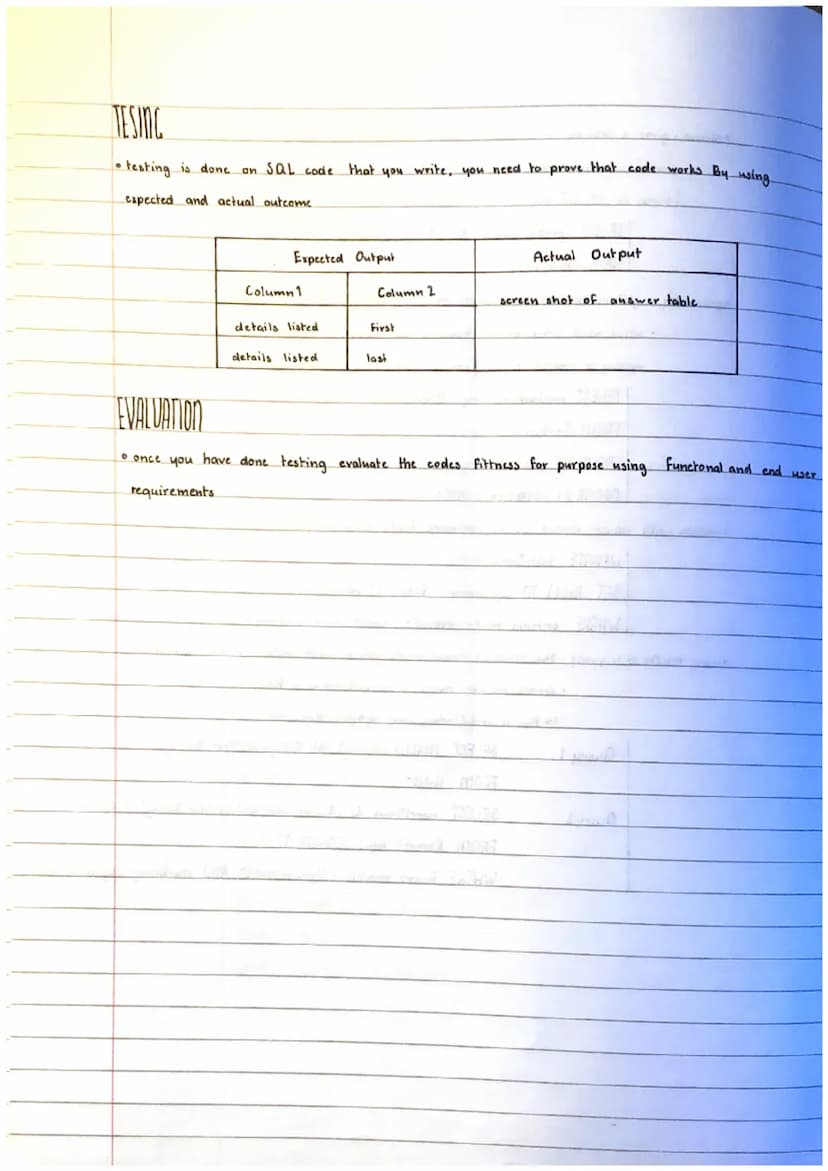 TESING
• testing is done on SQL code that you write, you need to prove that code works By using
expected and actual outcome
Expected Output Actual Output
Column 1 Column 2 screen shot of answer table
details listed First
details listed last
EVALUATION
• once you have done testing evaluate the codes fittness for purpose using Functonal and end user
requirements